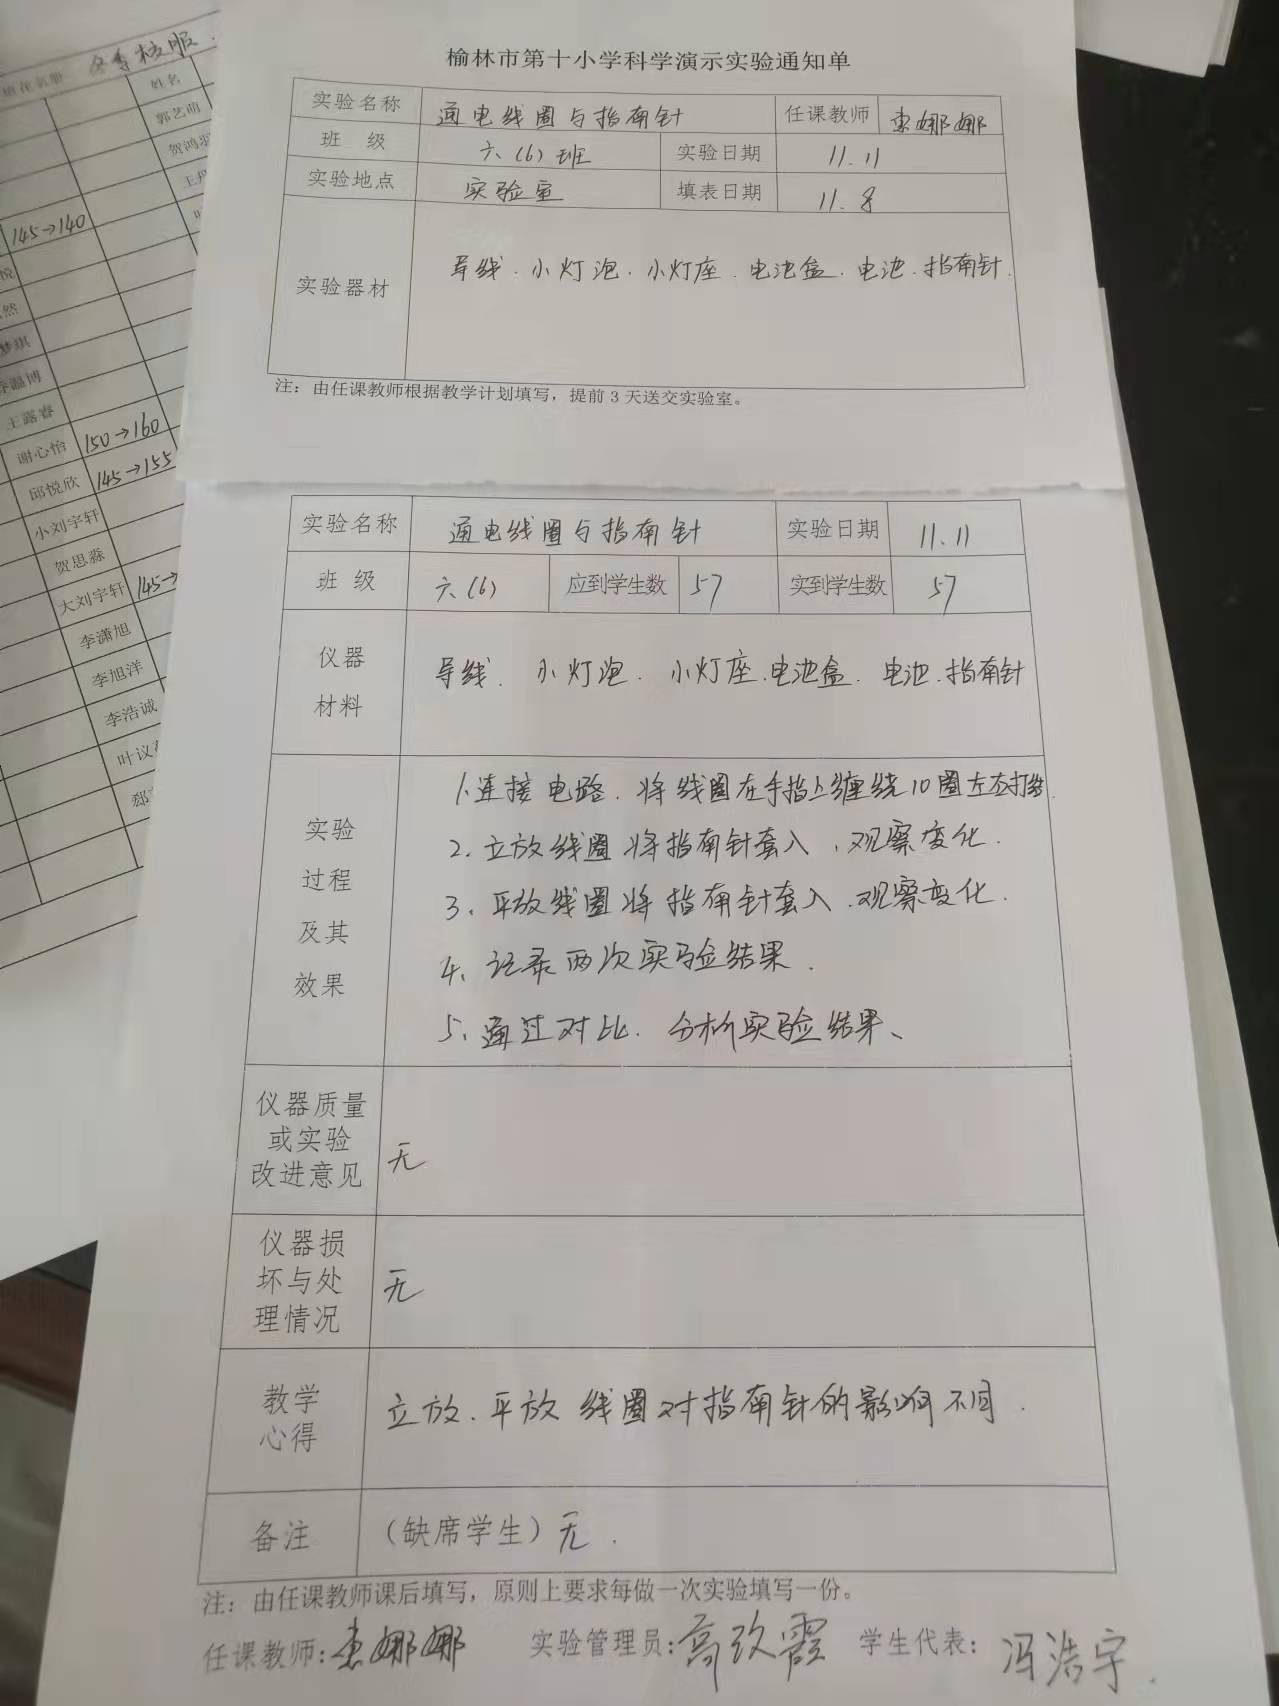 冬季校服.
姓名
郭艺萌
贺鸿羽
145→140
然
梦琪
温博
王露睿
谢心怡 150→160
邱悦欣 145→155
小刘宇轩
贺思淼
大刘宇轩 145→
李潇旭
李旭洋
李浩诚
叶议
榆林市第十小学科学演示实验通知单
实验名称 通电线圈与指南针 任课教师 惠娜娜
班 级 六(6)班 实验日期 11.11
实验地点 实验室 填表日期 11.8
实验器材 导线.小灯泡.小灯座.电池盒.电池.指南针.
注：由任课教师根据教学计划填写，提前3天送交实验室。
实验名称 通电线圈与指南针 实验日期 11.11
班 级 六(6) 应到学生数 57 实到学生数 57
仪器
材料
导线. 小灯泡. 小灯座.电池盒. 电池.指南针
实验
过程
及其
效果
1.连接电路.将线圈在手指上缠绕10圈左右打结.
2.立放线圈将指南针套入.观察变化.
3.平放线圈将指南针套入.观察变化.
4、记录两次实验结果.
5、通过对比.分析实验结果、
仪器质量
或实验
改进意见
无
仪器损
坏与处
理情况
无
教学
心得
立放.平放线圈对指南针的影响不同.
备注 （缺席学生）无.
注：由任课教师课后填写，原则上要求每做一次实验填写一份。
任课教师:惠娜娜 实验管理员:高玖霞 学生代表:冯浩宇.